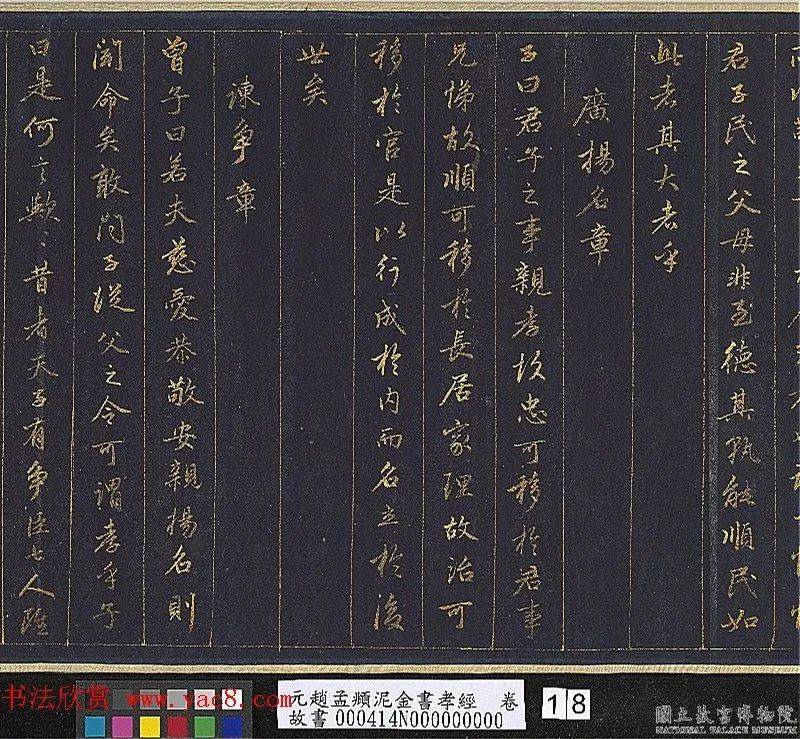 君子民之父母非至德其孰能順民如
此者其大者乎
廣揚名章
子曰君子之事親孝故忠可移於君事
兄悌故順可移於長居家理故治可
移於官是以行成於内而名立於後
世矣
諫爭章
曾子曰若夫慈愛恭敬安親揚名則
聞命矣敢問子從父之令可謂孝乎子
曰是何言歟〻昔者天子有爭臣七人雖
书法欣赏 www.yac8.com
元趙孟頫泥金書孝經 卷
故書000414N000000000
18
國立故宮博物院
NATIONAL PALACE MUSEUM